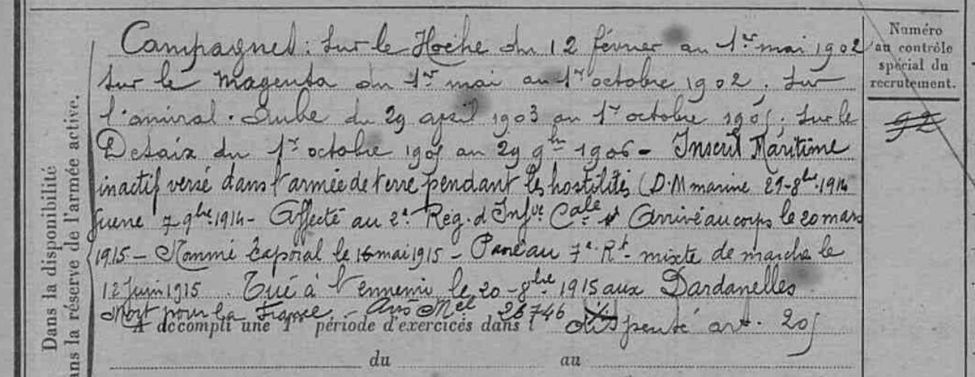 Campagnes : sur le Hoche du 12 février au 1er mai 1902
sur le Magenta du 1er mai au 1er octobre 1902. sur
l'amiral. Aube du 29 april 1903 au 1er octobre 1905. sur le
Desaix du 1er octobre 1905 au 29 9bre 1906 - Inscrit Maritime
inactif versé dans l'armée de terre pendant les hostilités (D.M marine 29-8bre-1914
guerre 7 9bre 1914 - Affecté au 2e Rég. d'Infrie Cale Arrivé au corps le 20 mars
1915 - Nommé Caporal le 16 mai 1915 - Passé au 7e Rt mixte de marche le
12 Juin 1915. Tué à l'ennemi le 20-8bre 1915 aux Dardanelles
Mort pour la France. - Avis Mel 26746
A accompli une 1re période d'exercices dans l dispensé art. 205
du au
Numéro
au contrôle
spécial du
recrutement.
92
Dans la disponibilité
ans la réserve de l'armée active.